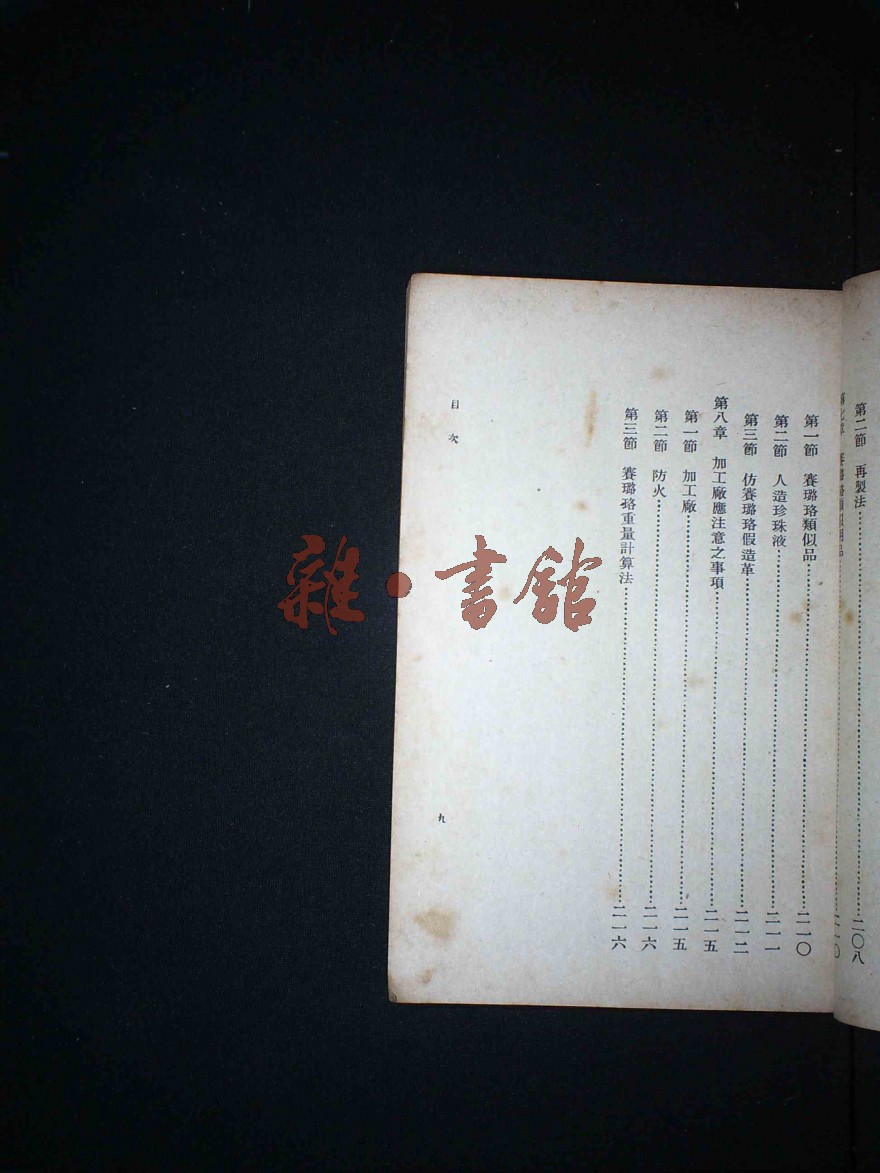 第二節　再製法……二〇八
第一節　賽璐珞類似品……二一〇
第二節　人造珍珠液……二一一
第三節　仿賽璐珞假造革……二一二
第八章　加工廠應注意之事項……二一五
第一節　加工廠……二一五
第二節　防火……二一六
第三節　賽璐珞重量計算法……二一六
目次
九
雜·書館